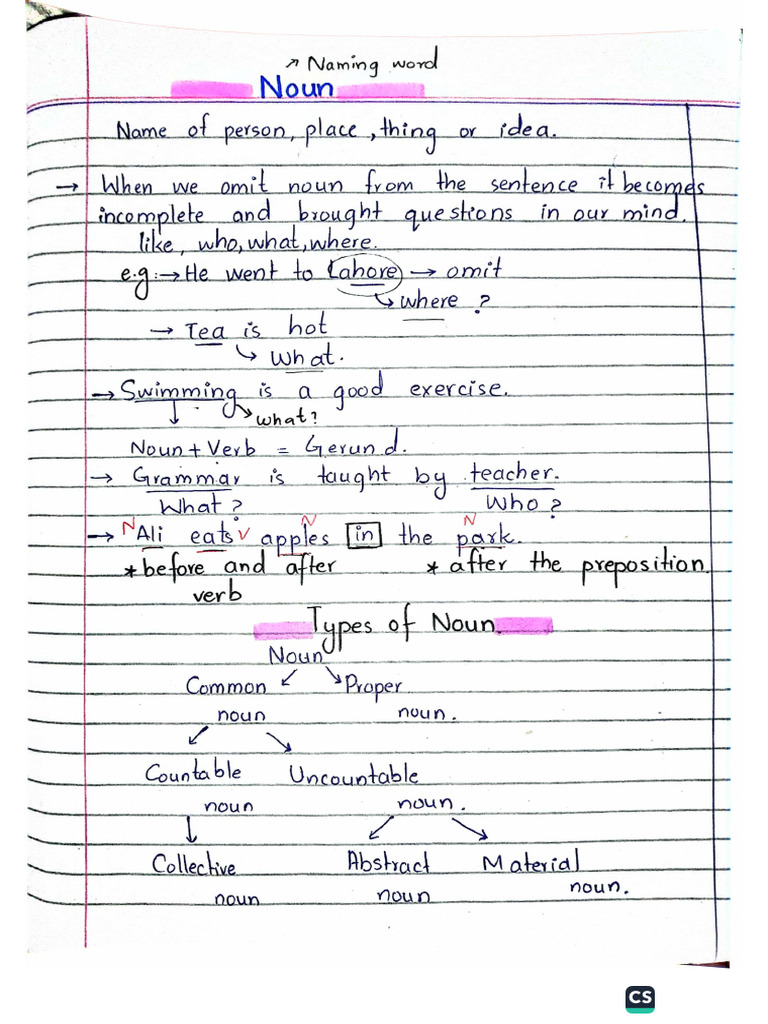 ↗ Naming word
Noun
Name of person, place, thing or idea.
→ When we omit noun from the sentence it becomes
incomplete and brought questions in our mind.
like, who, what, where.
e.g:→ He went to Lahore → omit
↳ where ?
→ Tea is hot
↳ What.
→ Swimming is a good exercise.
↓ ↘ what?
Noun + Verb = Gerund.
→ Grammar is taught by teacher.
What? Who?
N V N N
→ Ali eats apples in the park.
* before and after * after the preposition.
verb
Types of Noun.
Noun
Common ↙ ↘ Proper
noun noun.
↙ ↘
Countable Uncountable
noun noun.
↓ ↙ ↘
Collective Abstract Material
noun noun noun.
CS